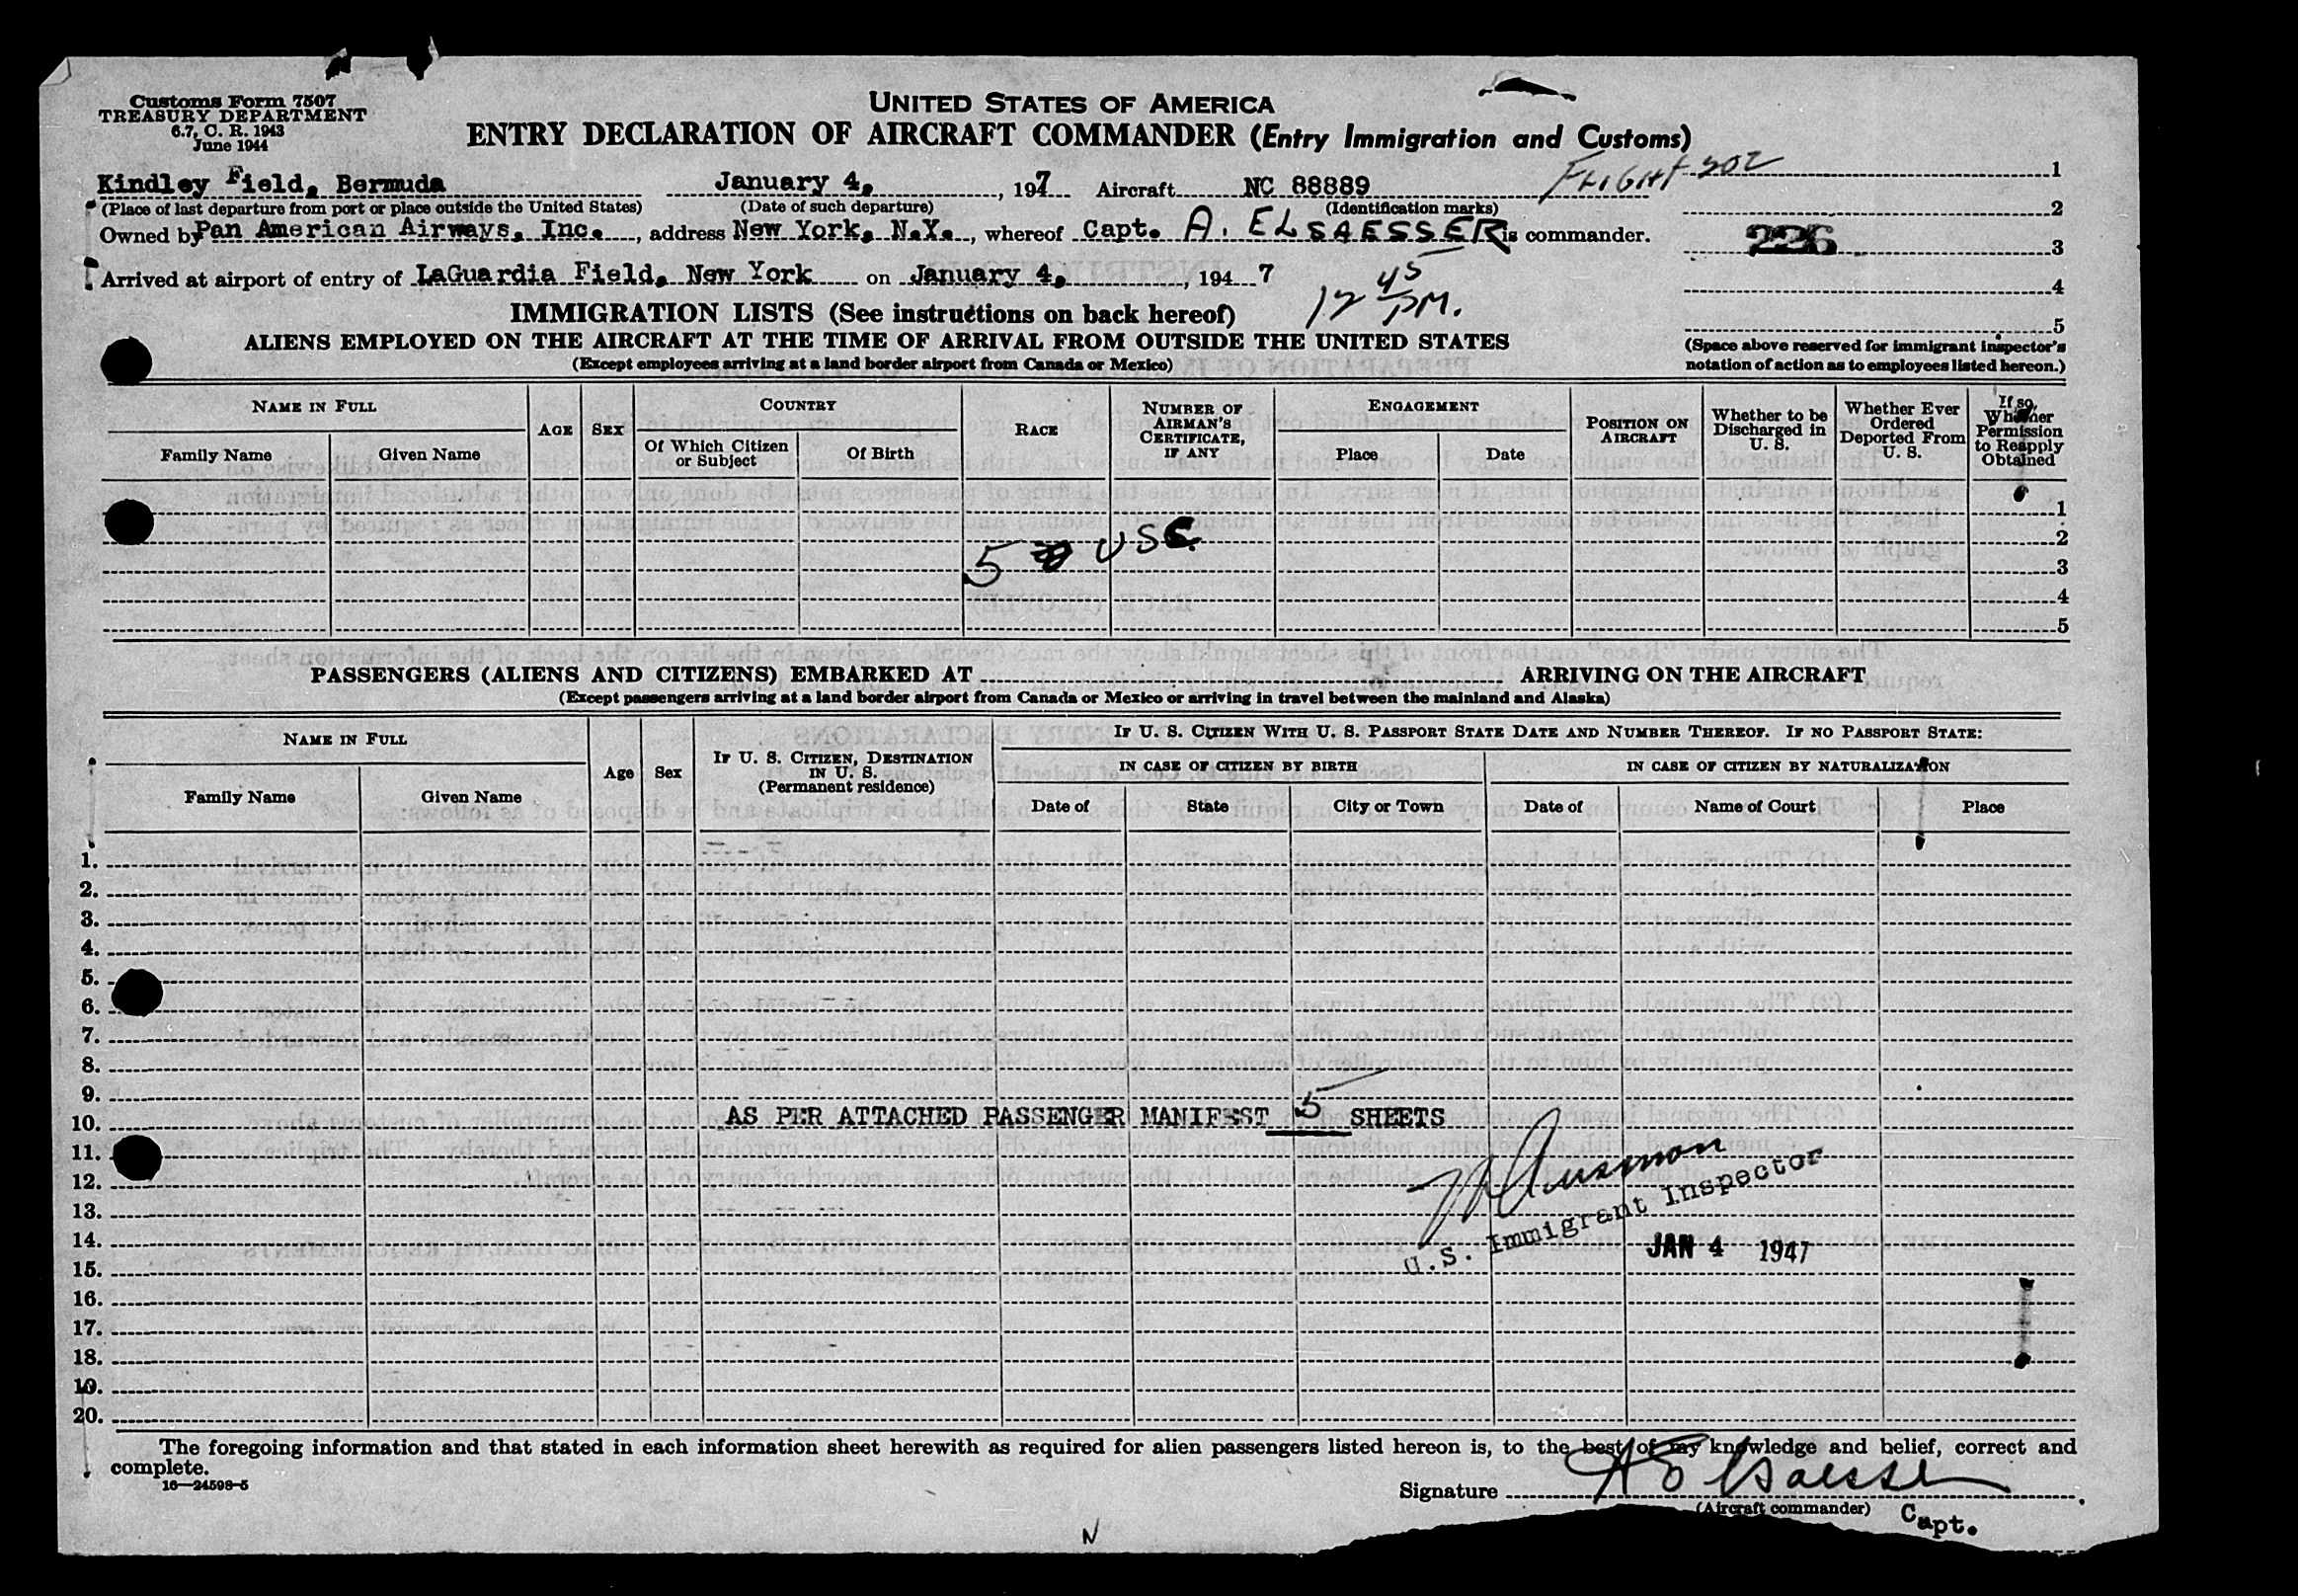 Customs Form 7507
TREASURY DEPARTMENT
6.7, C. R. 1943
June 1944
UNITED STATES OF AMERICA
ENTRY DECLARATION OF AIRCRAFT COMMANDER (Entry Immigration and Customs)
Kindley Field, Bermuda January 4, , 197 Aircraft NC 88889 FLIGHT 202 1
(Place of last departure from port or place outside the United States) (Date of such departure) (Identification marks) 2
Owned by Pan American Airways, Inc. , address New York, N.Y. , whereof Capt. A. ELSAESSER is commander. 226 3
Arrived at airport of entry of LaGuardia Field, New York on January 4, , 194 7 12 45 PM. 4
IMMIGRATION LISTS (See instructions on back hereof) 5
ALIENS EMPLOYED ON THE AIRCRAFT AT THE TIME OF ARRIVAL FROM OUTSIDE THE UNITED STATES
(Except employees arriving at a land border airport from Canada or Mexico)
(Space above reserved for immigrant inspector's
notation of action as to employees listed hereon.)
NAME IN FULL
Family Name
Given Name
AGE
SEX
COUNTRY
Of Which Citizen
or Subject
Of Birth
RACE
NUMBER OF
AIRMAN'S
CERTIFICATE,
IF ANY
ENGAGEMENT
Place
Date
POSITION ON
AIRCRAFT
Whether to be
Discharged in
U. S.
Whether Ever
Ordered
Deported From
U. S.
If so,
Whether
Permission
to Reapply
Obtained
1
2
5 USC
3
4
5
PASSENGERS (ALIENS AND CITIZENS) EMBARKED AT ARRIVING ON THE AIRCRAFT
(Except passengers arriving at a land border airport from Canada or Mexico or arriving in travel between the mainland and Alaska)
NAME IN FULL
Family Name
Given Name
Age
Sex
IF U. S. CITIZEN, DESTINATION
IN U. S.
(Permanent residence)
IF U. S. CITIZEN WITH U. S. PASSPORT STATE DATE AND NUMBER THEREOF. IF NO PASSPORT STATE:
IN CASE OF CITIZEN BY BIRTH
Date of
State
City or Town
IN CASE OF CITIZEN BY NATURALIZATION
Date of
Name of Court
Place
1.
2.
3.
4.
5.
6.
7.
8.
9.
10. AS PER ATTACHED PASSENGER MANIFEST 5 SHEETS
11.
12.
13.
U.S. Immigrant Inspector
14. JAN 4 1947
15.
16.
17.
18.
19.
20.
The foregoing information and that stated in each information sheet herewith as required for alien passengers listed hereon is, to the best of my knowledge and belief, correct and
complete.
16—24598-5
Signature A Elsaesser
(Aircraft commander) Capt.
N